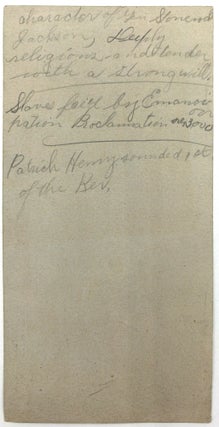 character of Gen Stonewal
Jackson, Deeply
religious, and tender
with a strong will,
Slaves freed by Emanci
pation Proclamation
Patrick Henry sounded
of the Rev,